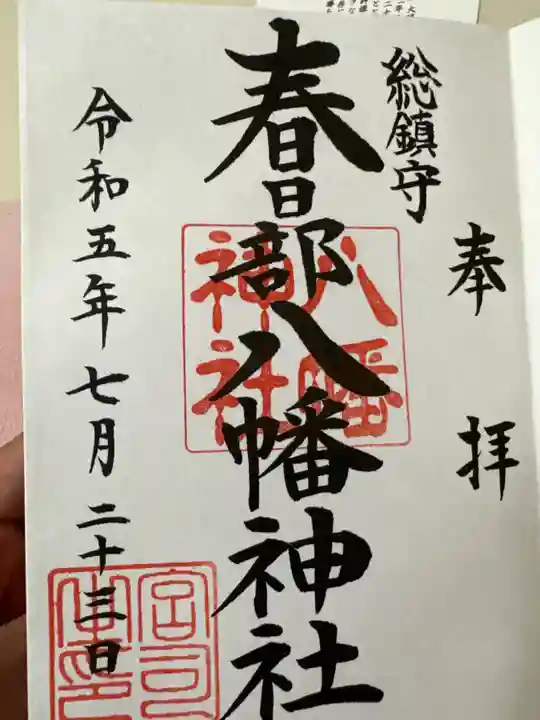 奉拝
総鎮守
春日部八幡神社
八幡
神社
令和五年七月二十三日